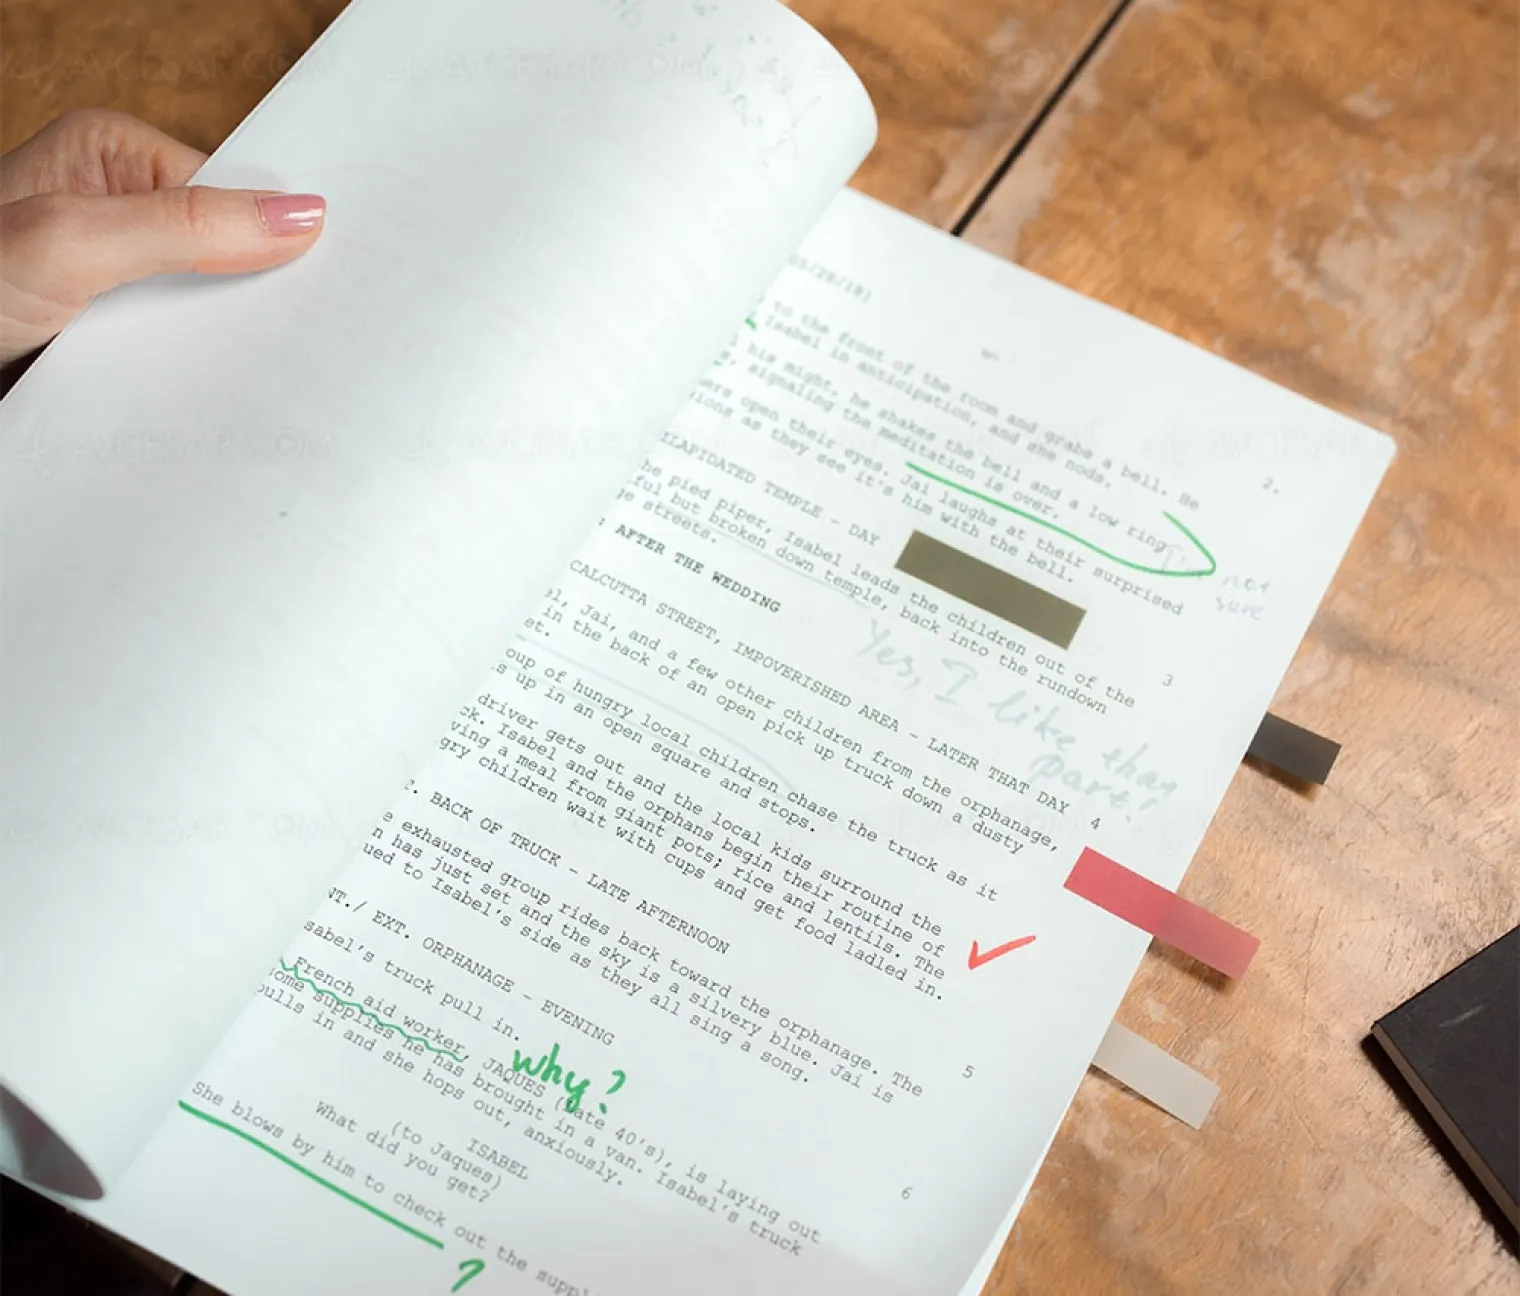 05/28/18)
2.
to the front of the room and grabs a bell. He
Isabel in anticipation, and she nods.
l his might, he shakes the bell and a low ring
, signaling the meditation is over.
ers open their eyes. Jai laughs at their surprised
ions as they see it's him with the bell.
I'm not
sure
ILAPIDATED TEMPLE - DAY 3
he pied piper, Isabel leads the children out of the
ful but broken down temple, back into the rundown
e streets.
Yes, I like that
part!
: AFTER THE WEDDING
CALCUTTA STREET, IMPOVERISHED AREA - LATER THAT DAY 4
el, Jai, and a few other children from the orphanage,
in the back of an open pick up truck down a dusty
et.
oup of hungry local children chase the truck as it
s up in an open square and stops.
driver gets out and the local kids surround the
ck. Isabel and the orphans begin their routine of
ving a meal from giant pots; rice and lentils. The
gry children wait with cups and get food ladled in.
T. BACK OF TRUCK - LATE AFTERNOON 5
e exhausted group rides back toward the orphanage. The
n has just set and the sky is a silvery blue. Jai is
ued to Isabel's side as they all sing a song.
NT./ EXT. ORPHANAGE - EVENING 6
sabel's truck pull in.
French aid worker, JAQUES (Late 40's), is laying out
ome supplies he has brought in a van. Isabel's truck
pulls in and she hops out, anxiously.
why?
ISABEL
(to Jaques)
What did you get?
She blows by him to check out the suppl
?
AVCESAR.COM